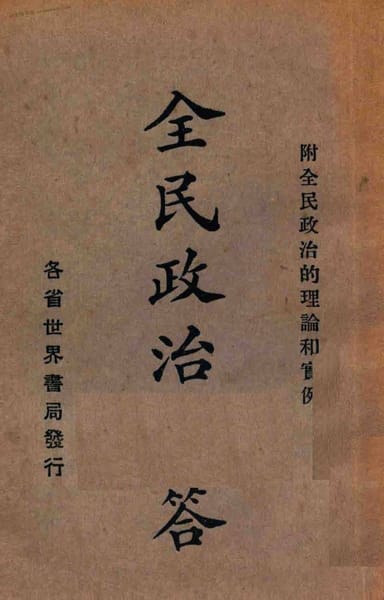 附全民政治的理論和實例
全民政治 答
各省世界書局發行